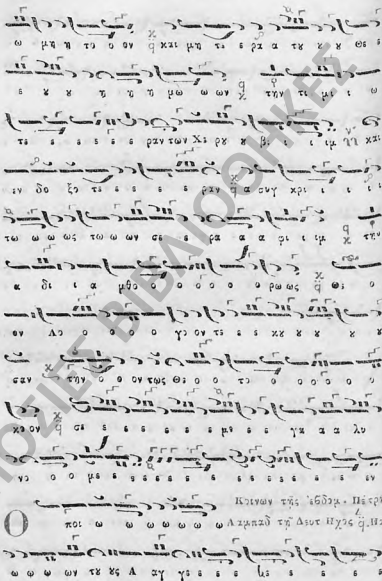 ω μη η το ο ον και μη τε ε ρα α του ου ου Θε ε
ε ου ου η η η μω ω ων την τι μι ι ω
τε ε ε ε ε ε ραν των Χε ρου ου βι ι ι ιμ και
εν δο ξο τε ε ε ε ε ε ραν α συγ κρι ι ι ι
τω ω ω ως τω ω ων σε ε ε ρα α α φι ι ιμ την
α δι ι α φθο ο ο ο ο ο ρω ως Θε ο
ον Λο ο ο ο ο γο ον τε ε ε κου ου ου ου ου
σαν την ο ο ον τως Θε ο ο το ο ο ο ο ο
κο ον σε ε ε ε ε ε ε με ε ε γα α α λυ
νο ο ο με ε ε ε ε ε ε ε ε ε ε ε ε εν
Κοινων της εβδομ. Πέτρ
Ο ποι ω ω ω ω ω ω ω Λαμπαδ τη Δευτ Ηχος
ω ω ω ων του ους Α αγ γε ε ε ε ε ε ε ε
ΟΣΙΕΣ ΒΙΒΛΙΟΘΗΚΕΣ